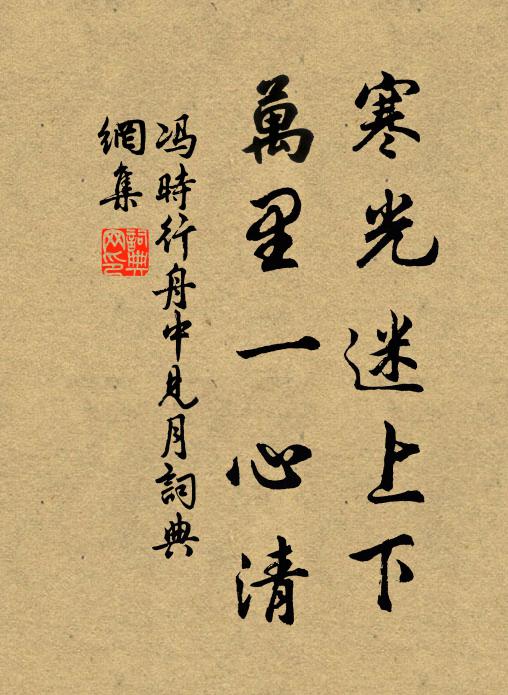 寒光迷上下
萬里一心清
冯時行舟中見月詞典
網集
詞典網印